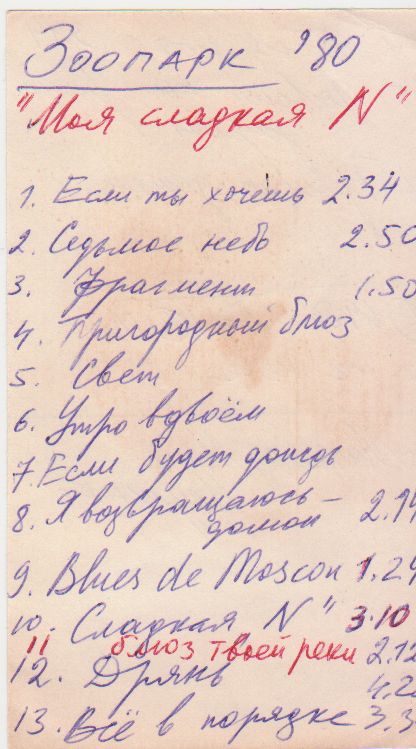 Зоопарк '80
"Моя сладкая N"
1. Если ты хочешь 2.34
2. Седьмое небо 2.50
3. Фрагмент 1.50
4. Пригородный блюз
5. Свет
6. Утро вдвоём
7. Если будет дождь
8. Я возвращаюсь –
домой 2.
9. Blues de Moscou 1.29
10. Сладкая N" 3.10
11 блюз твоей реки 2.12
12. Дрянь 4.2
13. Всё в порядке 3.3